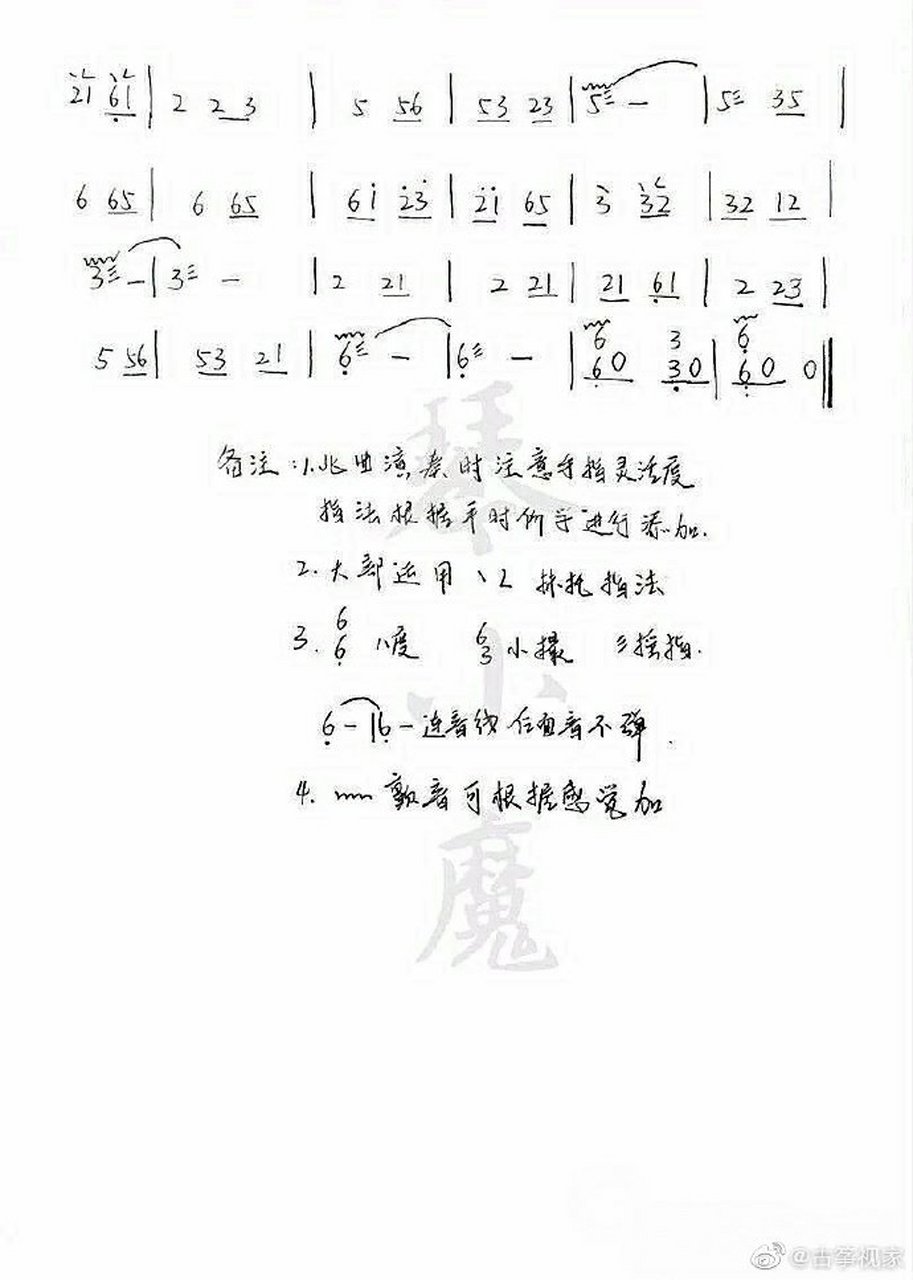 21 61 | 2 2 3 | 5 56 | 53 23 | 5 - | 5 35 |
6 65 | 6 65 | 61 23 | 21 65 | 3 32 | 32 12 |
3 - | 3 - | 2 21 | 2 21 | 21 61 | 2 23 |
5 56 | 53 21 | 6 - | 6 - | 6 3 | 6
60 30 | 60 0
备注:1.此曲演奏时注意手指灵活度
指法根据平时所学进行添加.
2.大部运用 ㇔ ㇄ 抹托指法
3. 6 6 八度 6 3 小撮 彡摇指.
6 - | 6 - 连音线后面音不弹.
4. 颤音可根据感觉加
琴小魔
@古筝视家